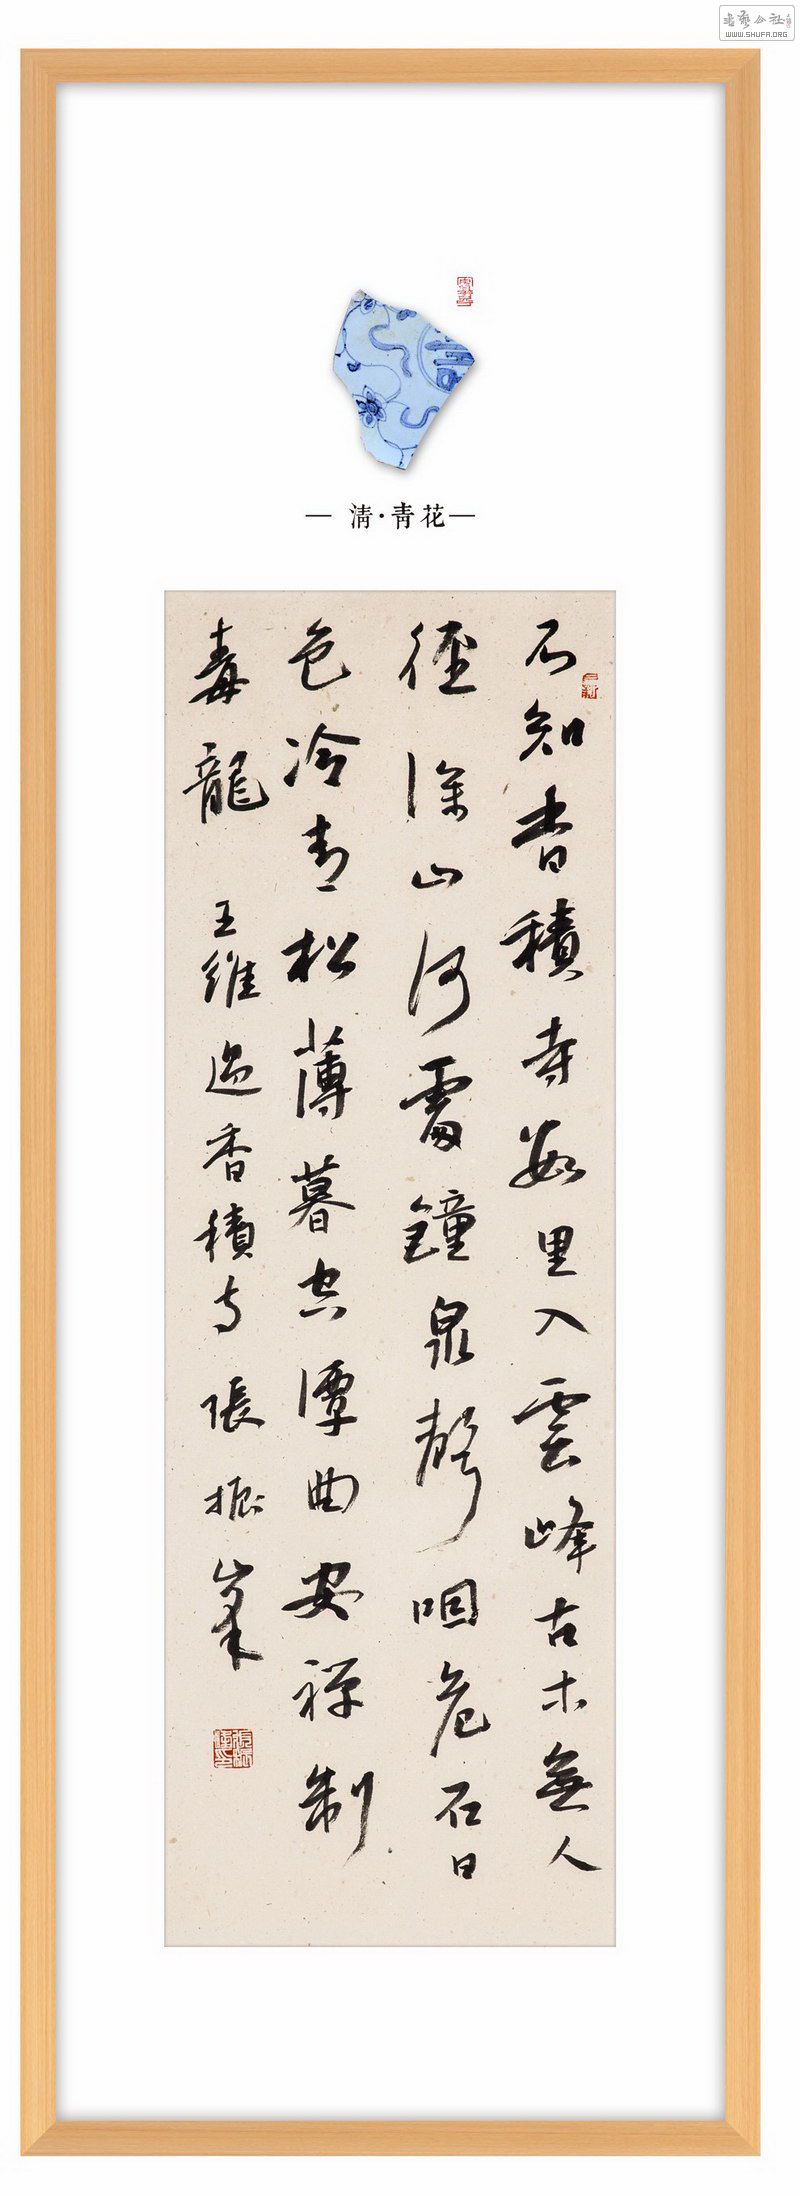 書藝公社
WWW.SHUFA.ORG
— 清·青花—
不知香積寺數里入雲峰古木無人
徑深山何處鐘泉聲咽危石日
色冷青松薄暮空潭曲安禪制
毒龍 王維過香積寺 張振峯